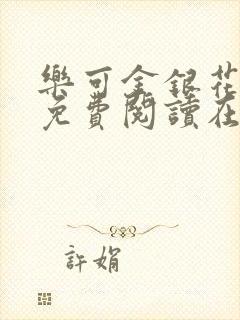 樂可金銀花
免費閱讀在
許娟